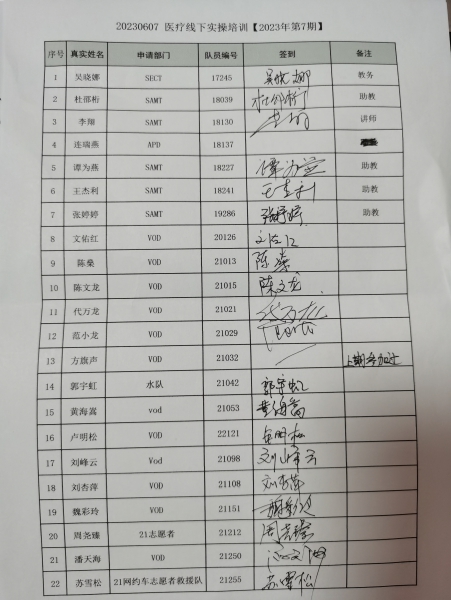 20230607 医疗线下实操培训【2023年第7期】
序号 真实姓名 申请部门 队员编号 签到 备注
1 吴晓娜 SECT 17245 吴晓娜 教务
2 杜邵桁 SAMT 18039 杜邵桁 助教
3 李翔 SAMT 18130 李翔 讲师
4 连瑞燕 APD 18137
5 谭为燕 SAMT 18227 谭为燕 助教
6 王杰利 SAMT 18241 王杰利 助教
7 张婷婷 SAMT 19286 张婷婷 助教
8 文佑红 VOD 20126 文佑红
9 陈燊 VOD 21013 陈燊
10 陈文龙 VOD 21015 陈文龙
11 代万龙 VOD 21021 代万龙
12 范小龙 VOD 21029
13 方旗声 VOD 21032 上期参加过
14 郭宇虹 水队 21042 郭宇虹
15 黄海嵩 vod 21053 黄海嵩
16 卢明松 VOD 22121 卢明松
17 刘峰云 Vod 21098 刘峰云
18 刘杏萍 VOD 21108 刘杏萍
19 魏彩玲 VOD 21151
20 周尧臻 21志愿者 21212 周尧臻
21 潘天海 VOD 21250
22 苏雪松 21网约车志愿者救援队 21255 苏雪松